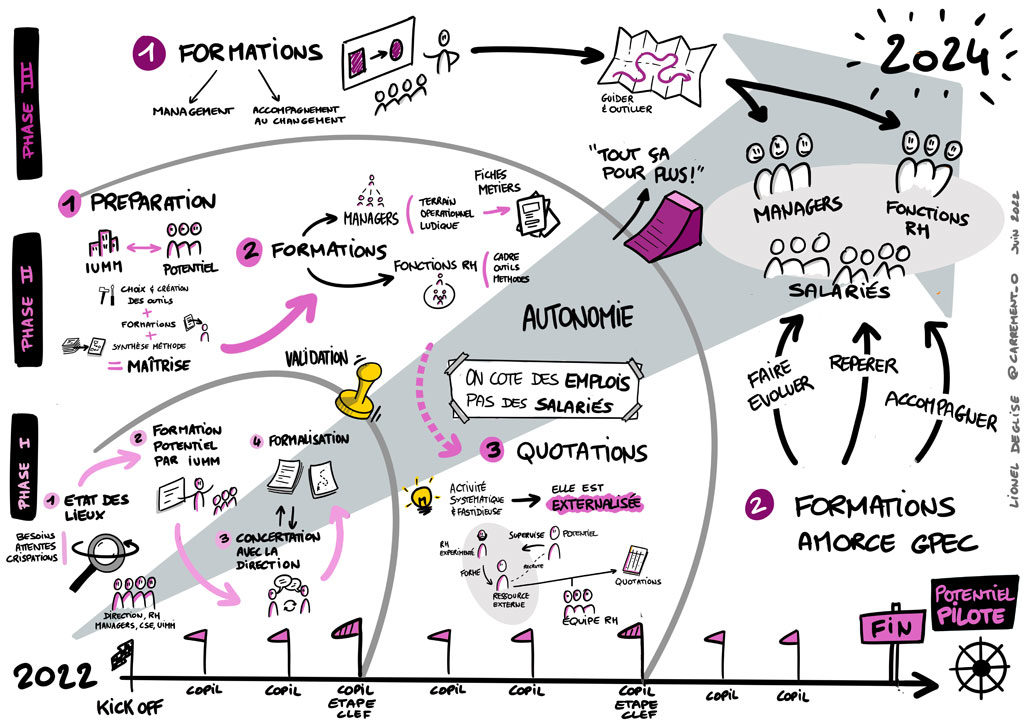 PHASE III
1 FORMATIONS
MANAGEMENT
ACCOMPAGNEMENT
AU CHANGEMENT
GUIDER
& OUTILLER
2024
MANAGERS
FONCTIONS
RH
SALARIÉS
FAIRE
EVOLUER
REPERER
ACCOMPAGNER
2 FORMATIONS
AMORCE GPEC
PHASE II
1 PREPARATION
IUMM
POTENTIEL
CHOIX & CRÉATION
DES OUTILS
+
FORMATIONS
+
SYNTHÈSE MÉTHODE
= MAÎTRISE
2 FORMATIONS
MANAGERS
TERRAIN
OPERATIONNEL
LUDIQUE
FICHES
METIERS
FONCTIONS RH
CADRE
OUTILS
METHODES
"TOUT ÇA
POUR PLUS!"
AUTONOMIE
VALIDATION
ON COTE DES EMPLOIS
PAS DES SALARIÉS
3 QUOTATIONS
ACTIVITÉ
SYSTEMATIQUE
& FASTIDIEUSE
ELLE EST
EXTERNALISÉE
RH
EXPERIMENTÉ
SUPERVISE
POTENTIEL
RECRUTE
FORME
RESSOURCE
EXTERNE
QUOTATIONS
EQUIPE RH
PHASE I
1 ETAT DES
LIEUX
BESOINS
ATTENTES
CRISPATIONS
DIRECTION, RH
MANAGERS, CSE, UIMM
2 FORMATION
POTENTIEL
PAR IUMM
3 CONCERTATION
AVEC LA
DIRECTION
4 FORMALISATION
2022
KICK OFF
COPIL
COPIL
COPIL
ETAPE
CLEF
COPIL
COPIL
COPIL
ETAPE
CLEF
COPIL
COPIL
FIN
POTENTIEL
PILOTE
LIONEL DEGLISE @CARREMENT_O JUIN 2022